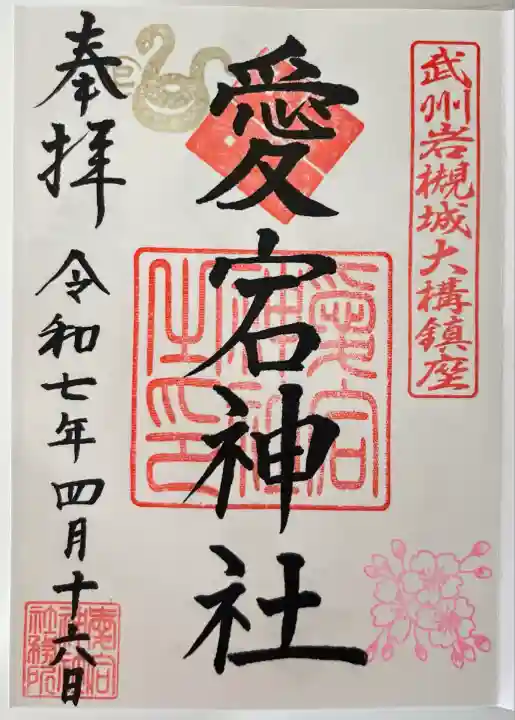 武州岩槻城大構鎮座
愛宕神社
愛宕
神社
之印
奉拝
令和七年四月十六日
愛宕
神社
社務所